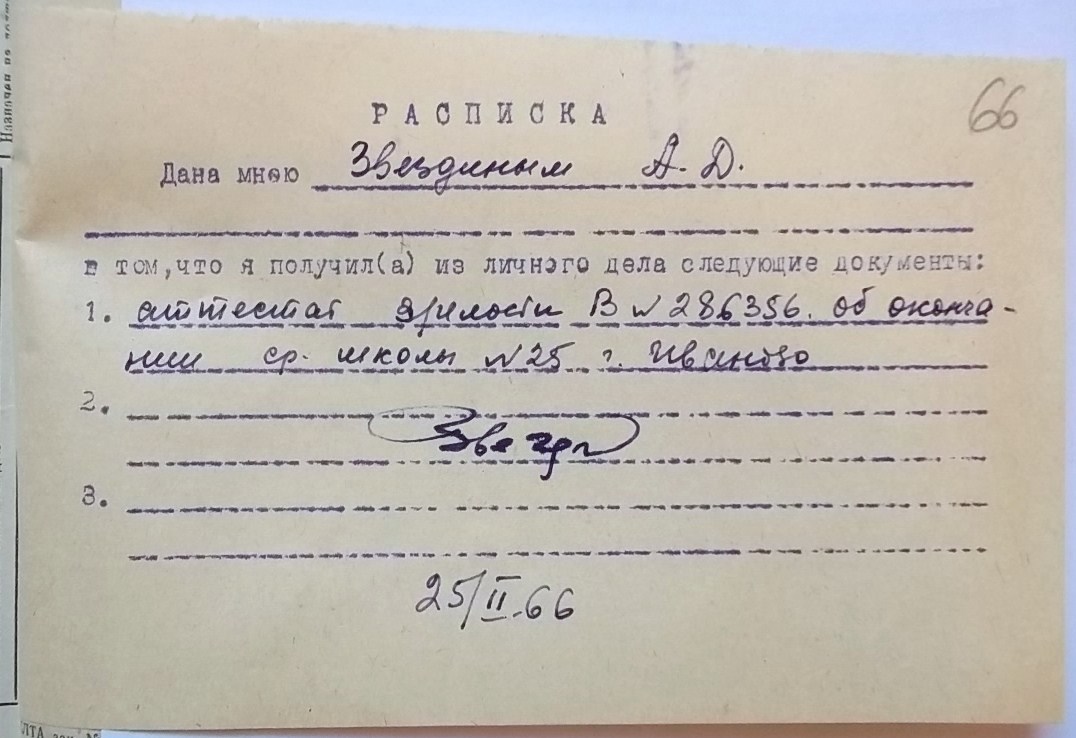 66
РАСПИСКА
Дана мною Звездиным А. Д.
в том, что я получил(а) из личного дела следующие документы:
1. аттестат зрелости В № 286356. об оконча-
нии ср. школы № 25 г. Иваново
2.
Звезди
3.
25/II-66